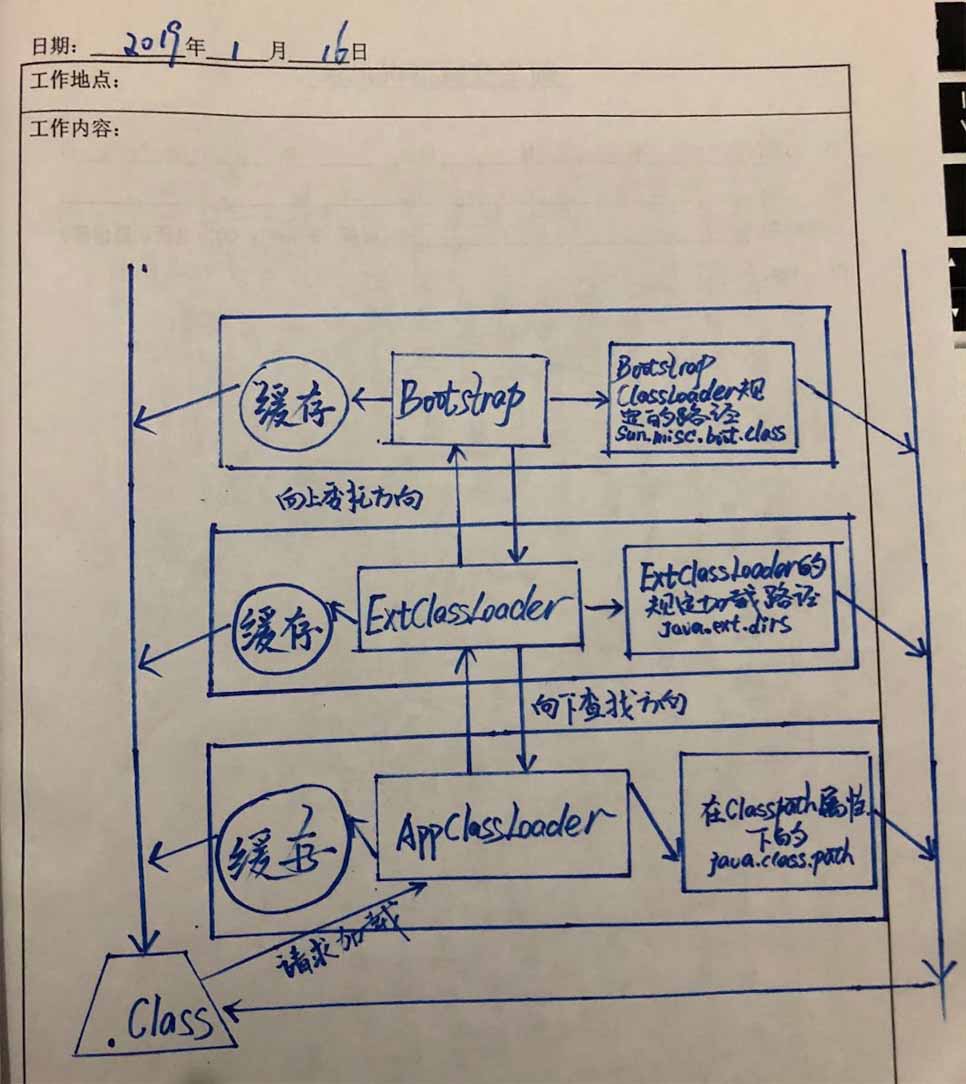 日期：2019年1月16日
工作地点：
工作内容：
缓存
Bootstrap
Bootstrap
ClassLoader规
定的路径
sun.misc.boot.class
向上委托方向
缓存
ExtClassLoader
ExtClassLoader的
规定加载路径
java.ext.dirs
向下查找方向
缓存
AppClassLoader
在Classpath属性
下的
java.class.path
请求加载
.Class